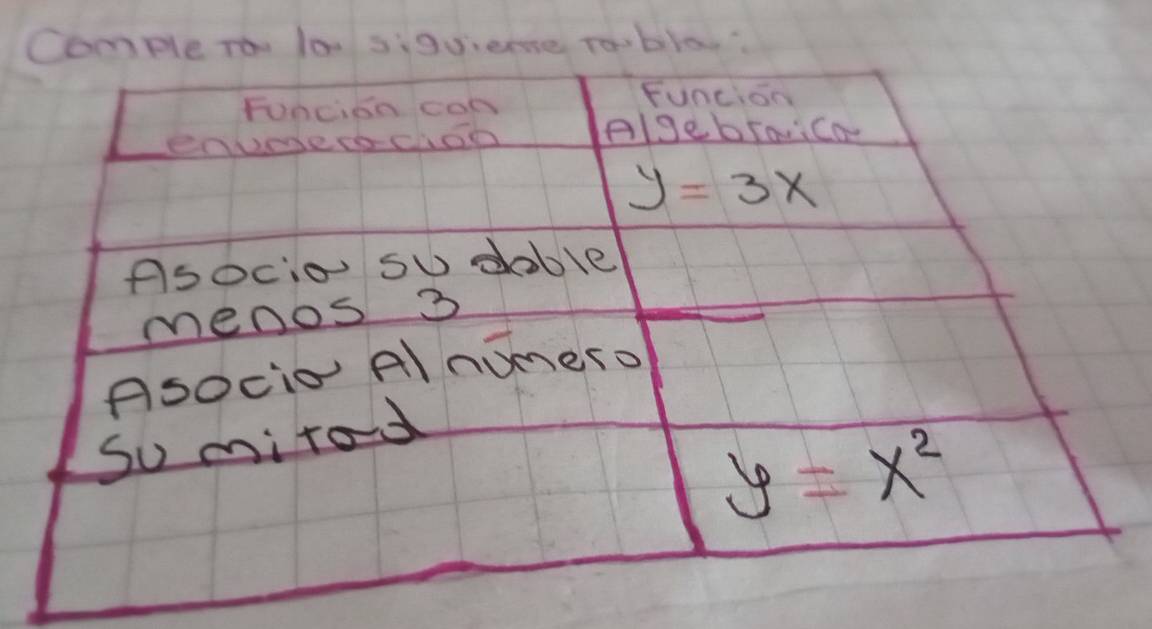 Completa la siguiente tabla:
Función con
enumeración
Función
Algebraica
y = 3x
Asocia su doble
menos 3
Asocia Al número
su mitad
y = x²